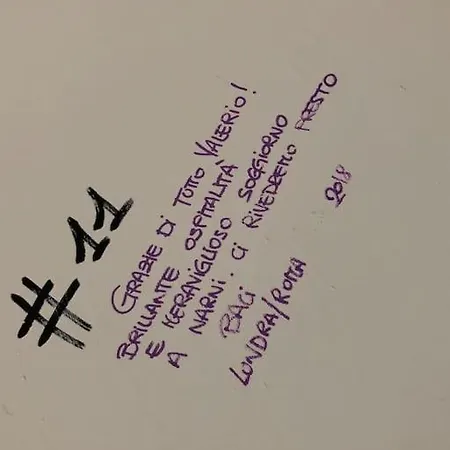 #11
GRAZIE DI TUTTO VALERIO!
BRILLANTE OSPITALITÀ
E MERAVIGLIOSO SOGGIORNO
A NARNI. CI RIVEDREMO PRESTO
BACI
LONDRA/ROMA 2018